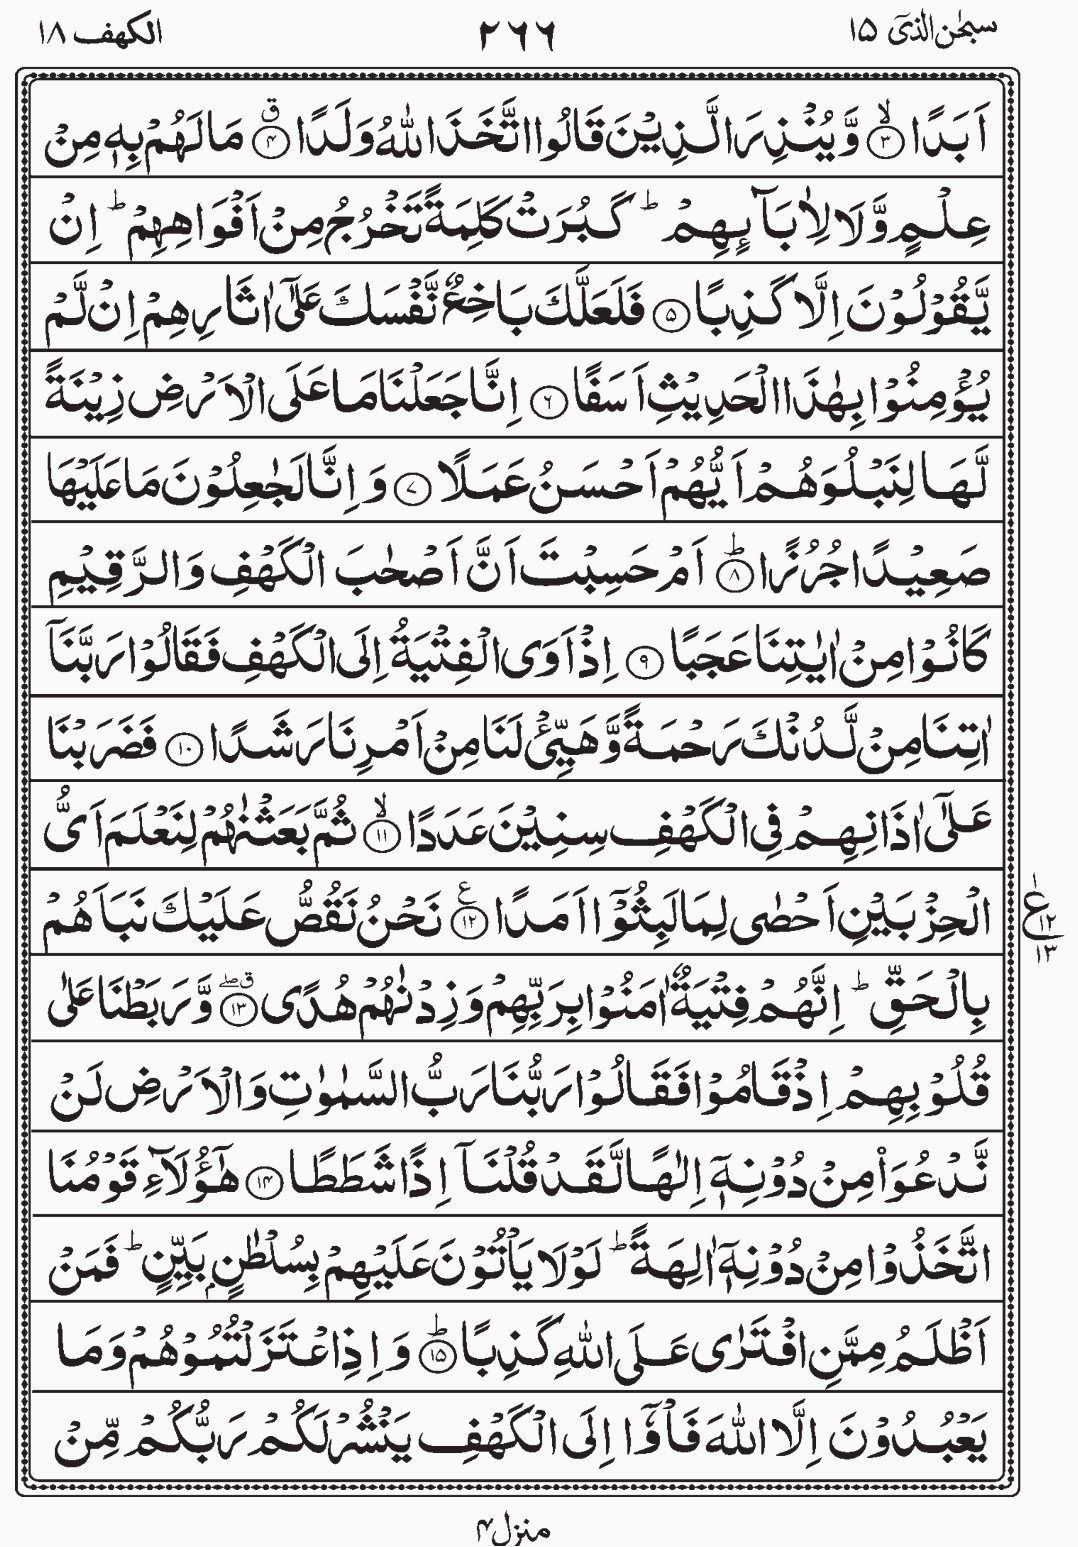 سبحٰن الذیٓ ۱۵
۲۶۶
الکهف ۱۸
اَبَدًا ۙ﴿۳﴾ وَّیُنْذِرَ الَّذِیْنَ قَالُوا اتَّخَذَ اللّٰهُ وَلَدًا ۗ﴿۴﴾ مَا لَهُمْ بِهٖ مِنْ
عِلْمٍ وَّلَا لِاٰبَآىِٕهِمْ ؕ كَبُرَتْ كَلِمَةً تَخْرُجُ مِنْ اَفْوَاهِهِمْ ؕ اِنْ
یَّقُوْلُوْنَ اِلَّا كَذِبًا ﴿۵﴾ فَلَعَلَّكَ بَاخِعٌ نَّفْسَكَ عَلٰۤی اٰثَارِهِمْ اِنْ لَّمْ
یُؤْمِنُوْا بِهٰذَا الْحَدِیْثِ اَسَفًا ﴿۶﴾ اِنَّا جَعَلْنَا مَا عَلَی الْاَرْضِ زِیْنَةً
لَّهَا لِنَبْلُوَهُمْ اَیُّهُمْ اَحْسَنُ عَمَلًا ﴿۷﴾ وَ اِنَّا لَجٰعِلُوْنَ مَا عَلَیْهَا
صَعِیْدًا جُرُزًا ؕ﴿۸﴾ اَمْ حَسِبْتَ اَنَّ اَصْحٰبَ الْكَهْفِ وَالرَّقِیْمِ
كَانُوْا مِنْ اٰیٰتِنَا عَجَبًا ﴿۹﴾ اِذْ اَوَی الْفِتْیَةُ اِلَی الْكَهْفِ فَقَالُوْا رَبَّنَاۤ
اٰتِنَا مِنْ لَّدُنْكَ رَحْمَةً وَّهَیِّئْ لَنَا مِنْ اَمْرِنَا رَشَدًا ﴿۱۰﴾ فَضَرَبْنَا
عَلٰۤی اٰذَانِهِمْ فِی الْكَهْفِ سِنِیْنَ عَدَدًا ۙ﴿۱۱﴾ ثُمَّ بَعَثْنٰهُمْ لِنَعْلَمَ اَیُّ
الْحِزْبَیْنِ اَحْصٰی لِمَا لَبِثُوْۤا اَمَدًا ﴿۱۲﴾ۧ نَحْنُ نَقُصُّ عَلَیْكَ نَبَاَهُمْ
ع
۱۲
۱۳
بِالْحَقِّ ؕ اِنَّهُمْ فِتْیَةٌ اٰمَنُوْا بِرَبِّهِمْ وَزِدْنٰهُمْ هُدًی ۗۖ﴿۱۳﴾ وَّرَبَطْنَا عَلٰی
قُلُوْبِهِمْ اِذْ قَامُوْا فَقَالُوْا رَبُّنَا رَبُّ السَّمٰوٰتِ وَالْاَرْضِ لَنْ
نَّدْعُوَا۠ مِنْ دُوْنِهٖۤ اِلٰهًا لَّقَدْ قُلْنَاۤ اِذًا شَطَطًا ﴿۱۴﴾ هٰۤؤُلَآءِ قَوْمُنَا
اتَّخَذُوْا مِنْ دُوْنِهٖۤ اٰلِهَةً ؕ لَوْلَا یَاْتُوْنَ عَلَیْهِمْ بِسُلْطٰنٍۭ بَیِّنٍ ؕ فَمَنْ
اَظْلَمُ مِمَّنِ افْتَرٰی عَلَی اللّٰهِ كَذِبًا ؕ﴿۱۵﴾ وَ اِذِ اعْتَزَلْتُمُوْهُمْ وَمَا
یَعْبُدُوْنَ اِلَّا اللّٰهَ فَاْوٗۤا اِلَی الْكَهْفِ یَنْشُرْ لَكُمْ رَبُّكُمْ مِّنْ
منزل۴